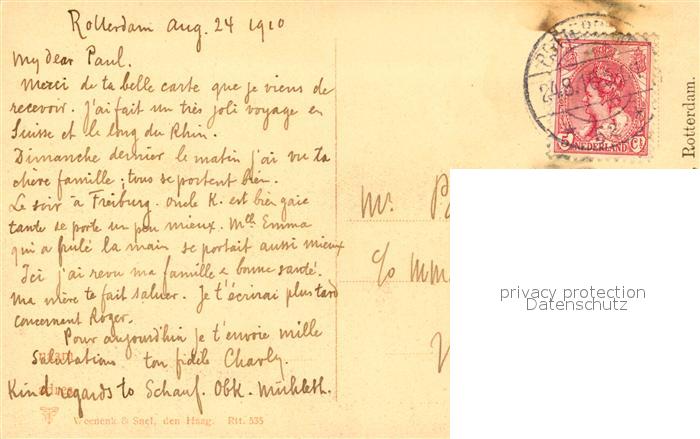 Rotterdam Aug. 24 1910
My dear Paul.
Merci de ta belle carte que je viens de
recevoir. J'ai fait un très joli voyage en
Suisse et le long du Rhin.
Dimanche dernier le matin j'ai vu ta
chère famille; tous se portent bien.
Le soir à Freiburg. Oncle K. est bien gaie
tante se porte un peu mieux. Mlle Emma
qui a brulé la main se portait aussi mieux
Ici j'ai revu ma famille a bonne santé.
Ma mère te fait saluer. Je t'écrirai plus tard
concernant Roger.
Pour aujourd'hui je t'envoie mille
salutations ton fidèle Charly.
Kind regards to Schauf. Obk. Mühleth.
Weenenk & Snel, den Haag. Rtt. 535
24.8.
5 NEDERLAND Ct
Rotterdam.
Mr. P
c/o Mm
privacy protection
Datenschutz